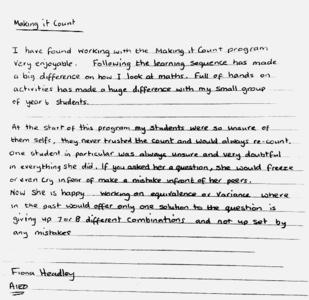 Making it Count
I have found working with the Making it Count program
very enjoyable. Following the learning sequence has made
a big difference on how I look at maths. Full of hands on
activities has made a huge difference with my small group
of year 6 students.
At the start of this program my students were so unsure of
them selfs, they never trusted the count and would always re-count.
One student in particular was always unsure and very doubtful
in everything she did. If you asked her a question, she would freeze
or even cry in fear of make a mistake infront of her peers.
Now she is happy working on equivalence or variance where
in the past would offer only one solution to the question is
giving up 7 or 8 different combinations and not up set by
any mistakes
Fiona Headley
AIEO